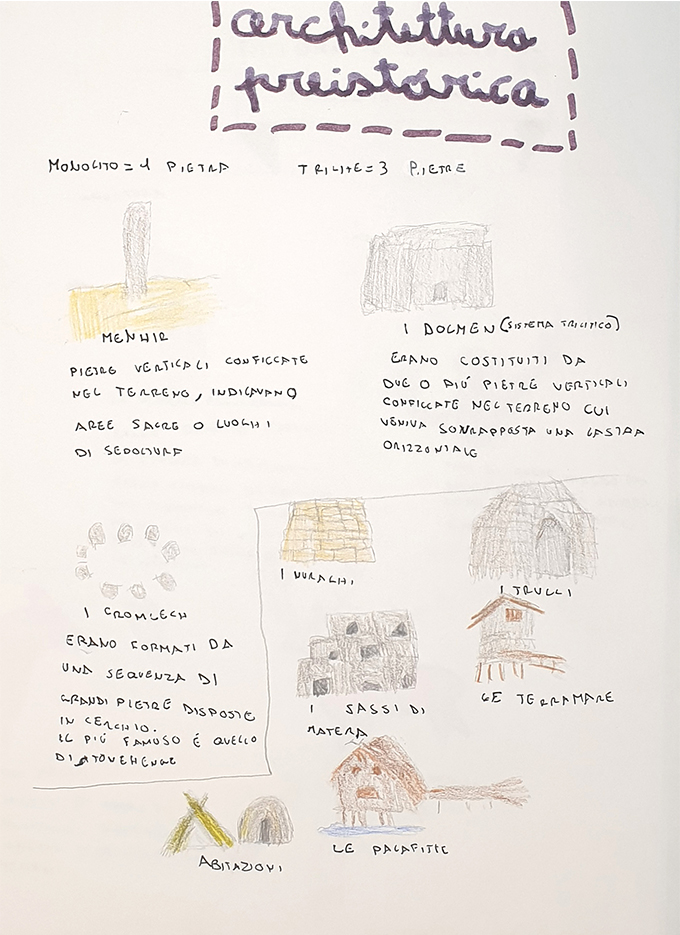 architettura
preistorica
MONOLITO = 1 PIETRA
TRILITE = 3 PIETRE
MENHIR
PIETRE VERTICALI CONFICCATE
NEL TERRENO, INDICAVANO
AREE SACRE O LUOGHI
DI SEPOLTURA
I DOLMEN (SISTEMA TRILITICO)
ERANO COSTITUITI DA
DUE O PIÚ PIETRE VERTICALI
CONFICCATE NEL TERRENO CUI
VENIVA SOVRAPPOSTA UNA LASTRA
ORIZZONTALE
I CROMLECH
ERANO FORMATI DA
UNA SEQUENZA DI
GRANDI PIETRE DISPOSTE
IN CERCHIO.
IL PIÚ FAMOSO É QUELLO
DI STOVEHENGE
I NURAGHI
I TRULLI
I SASSI DI
MATERA
LE TERRAMARE
ABITAZIONI
LE PALAFITTE